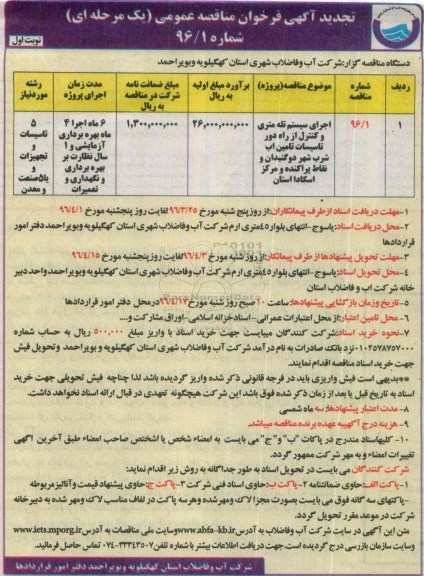 تجدید آگهی فرخوان مناقصه عمومی (یک مرحله ای)
شماره ۹۶/۱
نوبت اول
دستگاه مناقصه گزار: شرکت آب وفاضلاب شهری استان کهگیلویه وبویراحمد
ردیف | شماره مناقصه | موضوع مناقصه(پروژه) | برآورد مبلغ اولیه به ریال | مبلغ ضمانت نامه شرکت در مناقصه به ریال | مدت زمان اجرای پروژه | رشته موردنیاز
۱ | ۹۶/۱ | اجرای سیستم تله متری و کنترل از راه دور تاسیسات تامین اب شرب شهر دوگنبدان و نقاط پراکنده و مرکز اسکادا استان | ۲۶,۰۰۰,۰۰۰,۰۰۰ | ۱,۳۰۰,۰۰۰,۰۰۰ | ۶ ماه اجرا ۴ ماه بهره برداری آزمایشی و ۱ سال نظارت بر بهره برداری و نگهداری و تعمیرات | ۵ تاسیسات و تجهیزات یا۵صنعت و معدن
۱-مهلت دریافت اسناد ازطرف پیمانکاران:از روز پنج شنبه مورخ ۹۶/۳/۲۵ لغایت روز پنجشنبه مورخ ۹۶/۴/۱
۲-محل دریافت اسناد:یاسوج-انتهای بلوار۴۵متری ارم شرکت آب وفاضلاب شهری استان کهگیلویه وبویراحمددفتر امور
قراردادها
۳-مهلت تحویل پیشنهادها ازطرف پیمانکاران:از روز شنبه مورخ ۹۶/۴/۳ لغایت روز پنجشنبه مورخ ۹۶/۴/۱۵
۴-محل تحویل اسناد:یاسوج-انتهای بلوار۴۵متری ارم شرکت آب وفاضلاب شهری استان کهگیلویه وبویراحمد واحد دبیر
خانه شرکت اب و فاضلاب استان
۵-تاریخ وزمان بازگشایی پیشنهادها: ساعت ۱۰ صبح روز شنبه مورخ ۹۶/۴/۱۷ درمحل دفتر امور قراردادها
۶-محل تامین اعتبار:از محل اعتبارات عمرانی-اسنادخزانه اسلامی-اوراق مشارکت و...
۷-نحوه خرید اسناد:شرکت کنندگان میبایست جهت خرید اسناد با واریز مبلغ ۵۰۰,۰۰۰ ریال به حساب شماره
۰۱۰۲۵۷۸۷۵۷۰۰۰ نزد بانک صادرات به نام درآمد شرکت آب وفاضلاب شهری استان کهگیلویه و بویراحمد وتحویل فیش
جهت خرید اسناد مناقصه اقدام نمایند.
**بدیهی است فیش واریزی باید در فرجه قانونی ذکر شده واریز گردیده باشد لذا چناچه فیش تحویلی جهت خرید
اسناد به تاریخ قبل یا بعد از زمان ذکر شده فوق باشد این شرکت هیچگونه تعهدی در قبال ارائه اسناد نخواهد داشت.
۸-مدت اعتبار پیشنهادها:سه ماه شمسی
۹- هزینه درج آگهی به عهده برنده مناقصه میباشد.
۱۰-کلیه اسناد مندرج در پاکات "ب" و "ج" می بایست به امضاء شخص یا اشخاص صاحب امضاء طبق آخرین آگهی
تغییرات امضاء و به مهر شرکت ممهور گردد.
شرکت کنندگان می بایست در تحویل اسناد به طور جداگانه به روش زیر اقدام نماید:
۱-پاکت الف:حاوی ضمانتنامه ۲-پاکت ب:حاوی اسناد فنی شرکت ۳-پاکت ج:حاوی پیشنهاد قیمت و آنالیز مربوطه
-پاکتهای سه گانه فوق می بایست بصورت مجزا لاک ومهر شده وهرسه پاکت در لفاف مناسب لاک ومهر شده به دبیرخانه
شرکت در موعد مقرر تحویل گردد.
متن این آگهی در سایت شرکت آب وفاضلاب به آدرس www.abfa-kb.ir وسایت ملی مناقصات به آدرس www.iets.mporg.ir
وسایت سازمان بازرسی درج گردیده است. جهت دریافت اطلاعات بیشتر با شماره تلفن ۰۷۴-۳۳۳۴۳۵۰۷ تماس حاصل فرمائید.
شرکت آب وفاضلاب استان کهگیلویه وبویراحمد دفتر امور قراردادها